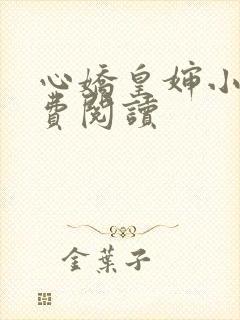 心嬌皇婶小
費閱讀
金葉子